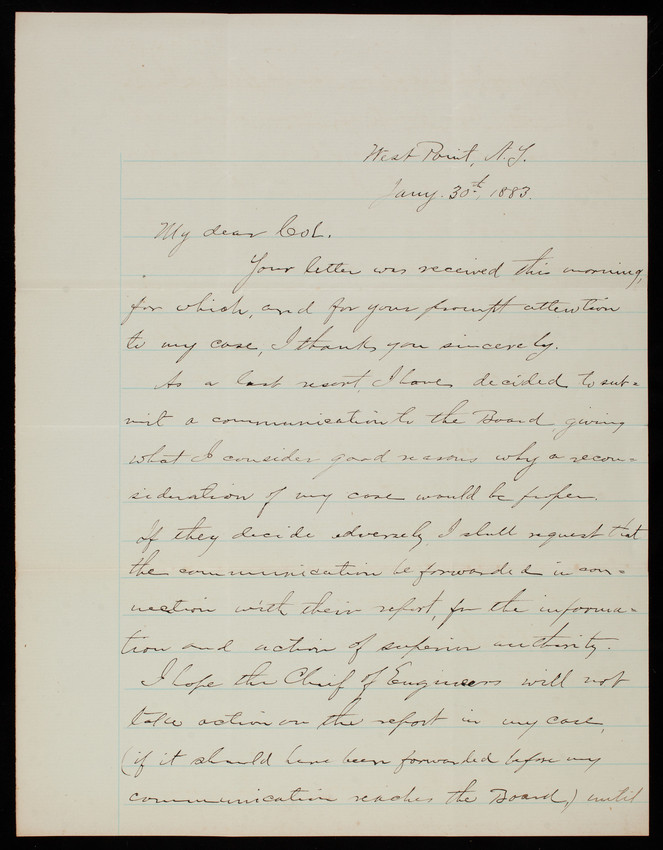 West Point, N.Y.
Jany. 30th, 1883.
My dear Col.
Your letter was received this morning,
for which, and for your prompt attention
to my case, I thank you sincerely.
As a last resort, I have decided to sub-
mit a communication to the Board giving
what I consider good reasons why a recon-
sideration of my case would be proper.
If they decide adversely, I shall request that
the communication be forwarded in con-
nection with their report, for the informa-
tion and action of superior authority.
I hope the Chief of Engineers will not
take action on the report in my case,
(if it should have been forwarded before my
communication reaches the Board,) until